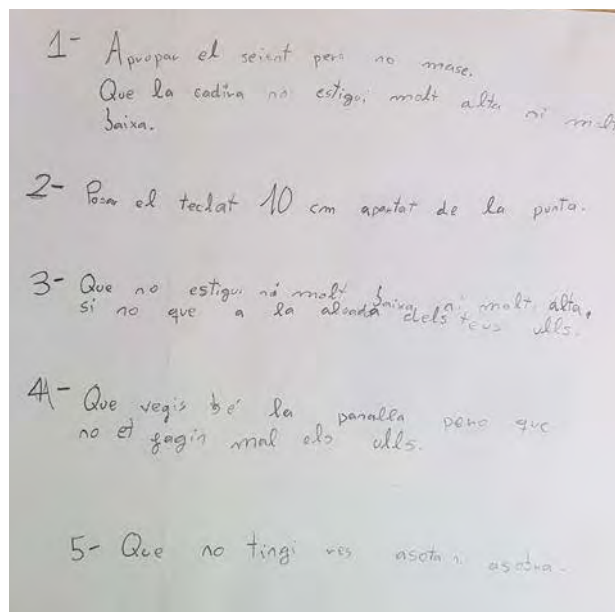 1- Apropar el seient pero no mase.
Que la cadira no estigui molt alta ni molt
baixa.
2- Posar el teclat 10 cm apartat de la punta.
3- Que no estigui ni molt baixa ni molt alta,
si no que a la alçada dels teus ulls.
4- Que vegis bé la panalla pero que
no et fagin mal els ulls.
5- Que no tingi res asota ni asobra.